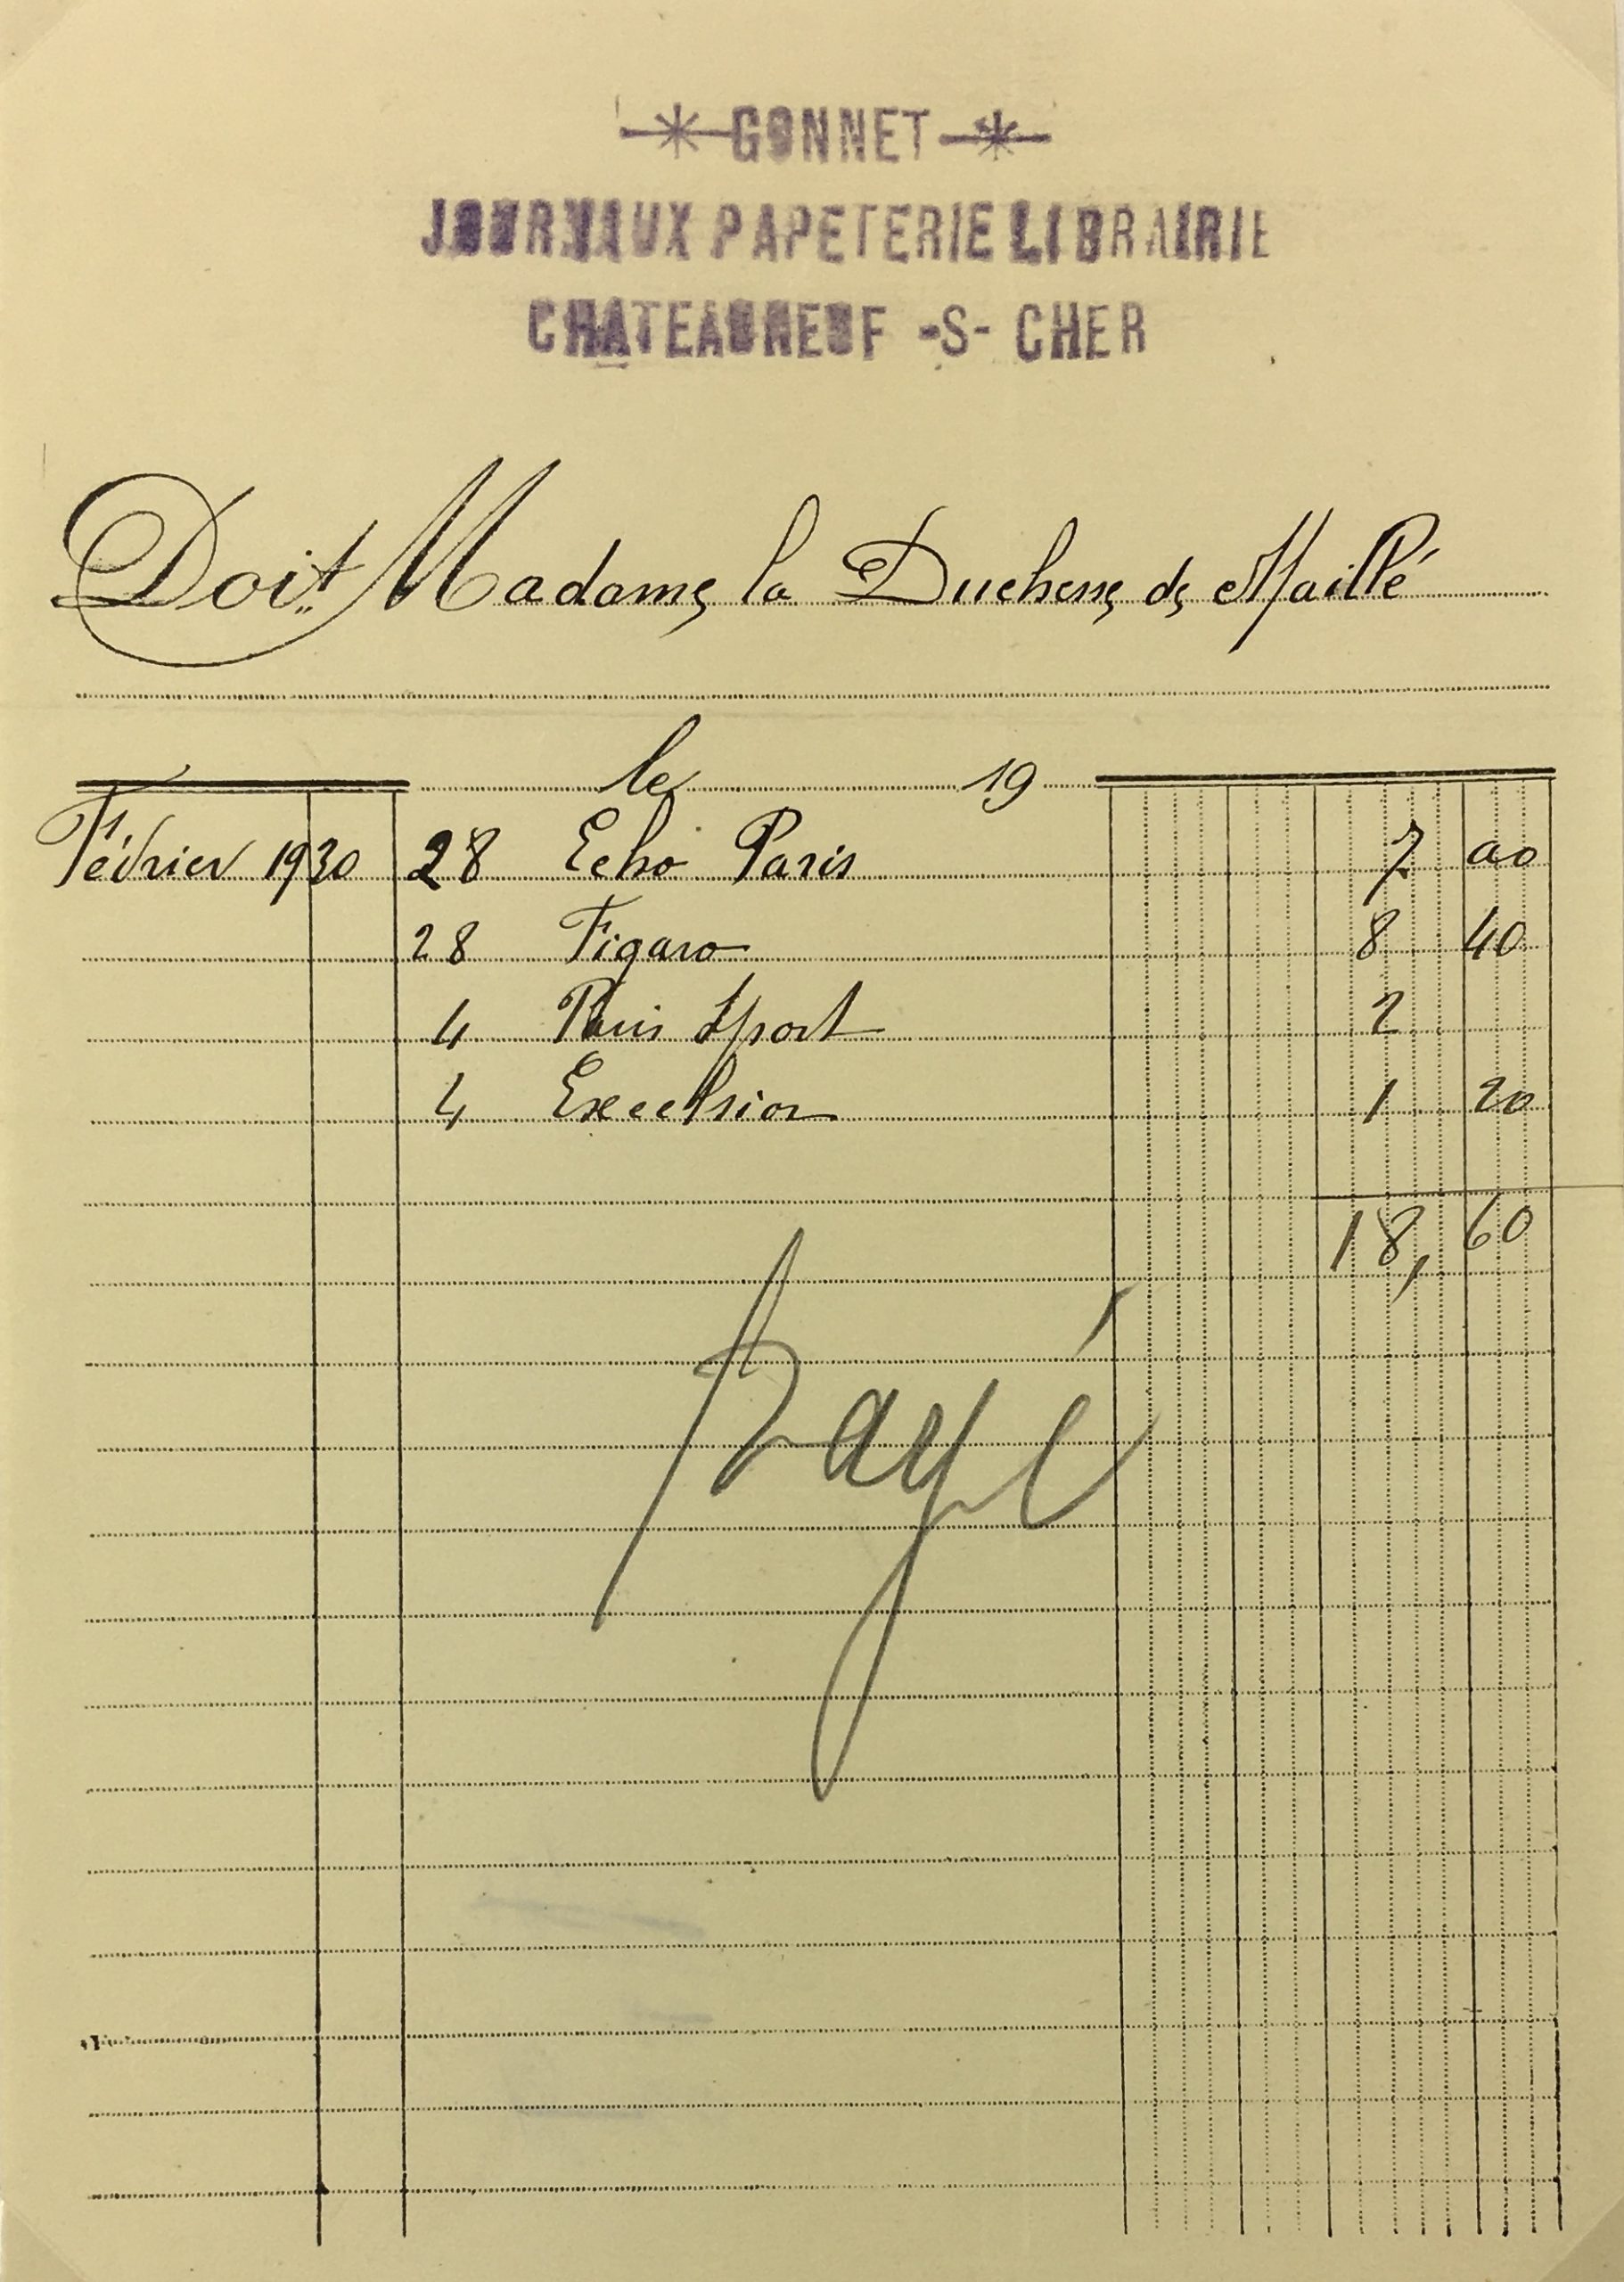 GONNET
JOURNAUX PAPETERIE LIBRAIRIE
CHATEAUNEUF -S- CHER
Doit Madame la Duchesse de Maillé
le 19
Février 1930 28 Echo Paris 7 00
28 Figaro 8 40
4 Paris Sport 2
4 Excelsior 1 20
18, 60
Payé